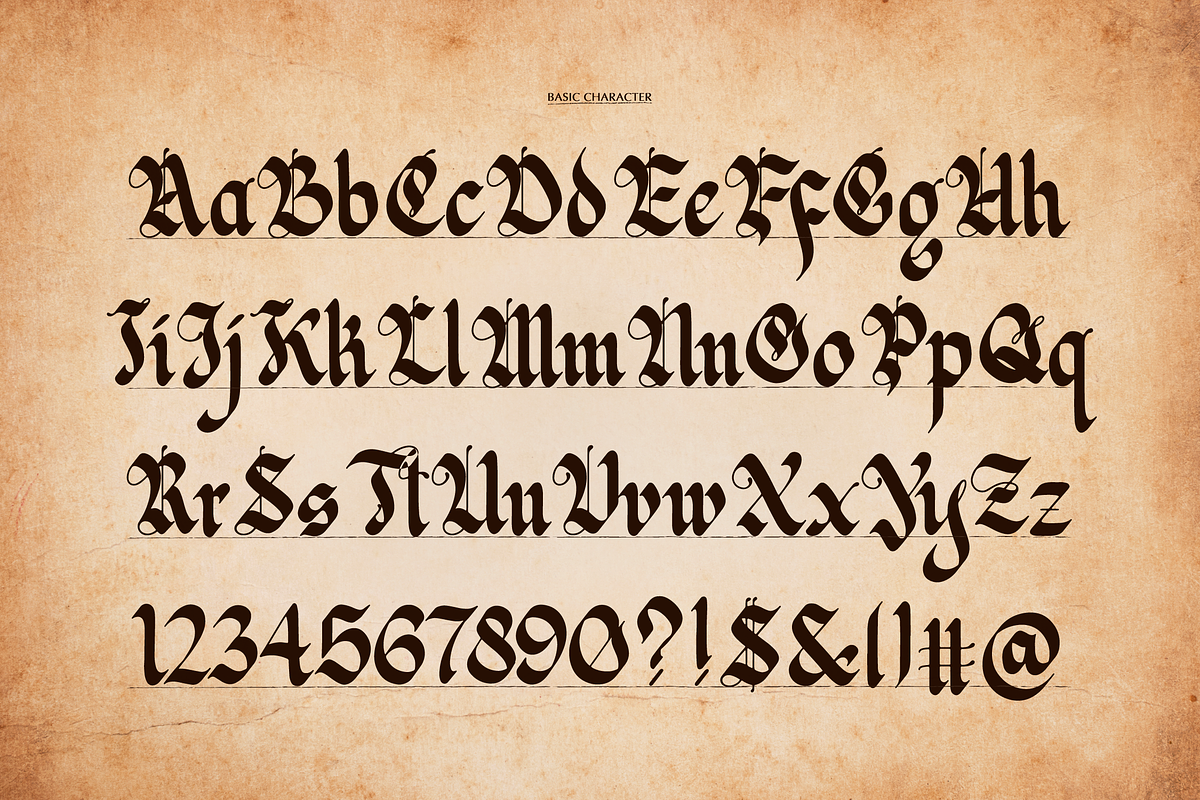 BASIC CHARACTER
AaBbCcDdEeFfGgHh
IiJjKkLlMmNnOoPpQq
RrSsTtUuVvwXxYyZz
1234567890?!$&()#@